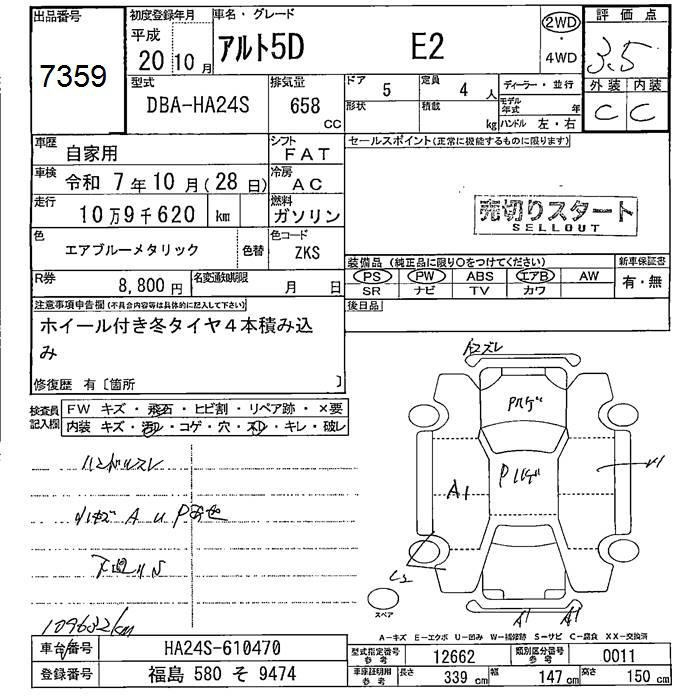 出品番号
7359
初度登録年月
平成
20年10月
車名・グレード
アルト5D E2
2WD
・
4WD
評価点
3.5
外装 内装
C C
型式
DBA-HA24S
排気量
658
CC
ドア
5
定員
4人
形状
積載
kg
ディーラー・並行
モデル年式 年
ハンドル 左・右
車歴
自家用
シフト
FAT
車検
令和 7年10月(28日)
冷房
AC
走行
10万9千620 km
燃料
ガソリン
色
エアブルーメタリック
色替
色コード
ZKS
R券
8,800円
名変通知期限
月 日
セールスポイント(正常に機能するものに限ります)
売切りスタート
SELLOUT
装備品(純正品に限り○をつけてください)
PS PW ABS エアB AW
SR ナビ TV カワ
新車保証書
有・無
後日品
注意事項申告欄(不具合内容等は具体的に記入して下さい)
ホイール付き冬タイヤ4本積み込
み
修復歴 有〔箇所 〕
検査員記入欄
FW キズ・飛石・ヒビ割・リペア跡・×要
内装 キズ・汚れ・コゲ・穴・スレ・キレ・破レ
ハンドルスレ
A U P
下回りS
109632km
A2 ズレ
Pハゲ
Pハゲ
A1
A1
A1
スペア
A-キズ E-エクボ U-凹み W-補修跡 S-サビ C-腐食 XX-交換済
車台番号
HA24S-610470
登録番号
福島 580 そ 9474
型式指定番号
参考
12662
類別区分番号
参考
0011
車庫証明用
参考
長さ
339 cm
幅
147 cm
高さ
150 cm